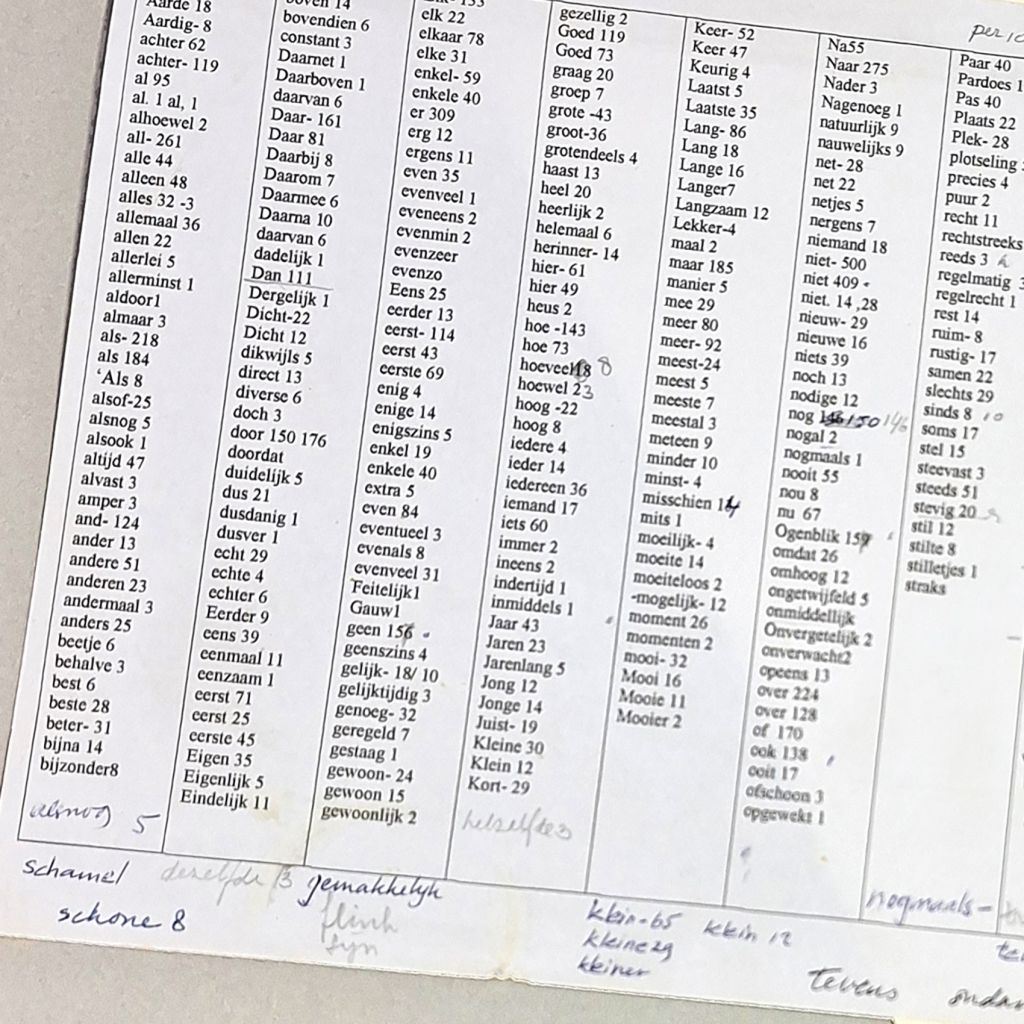 Aarde 18
Aardig- 8
achter 62
achter- 119
al 95
al. 1 al, 1
alhoewel 2
all- 261
alle 44
alleen 48
alles 32 -3
allemaal 36
allen 22
allerlei 5
allerminst 1
aldoor1
almaar 3
als- 218
als 184
‘Als 8
alsof-25
alsnog 5
alsook 1
altijd 47
alvast 3
amper 3
and- 124
ander 13
andere 51
anderen 23
andermaal 3
anders 25
beetje 6
behalve 3
best 6
beste 28
beter- 31
bijna 14
bijzonder8
alsnog 5
boven 14
bovendien 6
constant 3
Daarnet 1
Daarboven 1
daarvan 6
Daar- 161
Daar 81
Daarbij 8
Daarom 7
Daarmee 6
Daarna 10
daarvan 6
dadelijk 1
Dan 111
Dergelijk 1
Dicht-22
Dicht 12
dikwijls 5
direct 13
diverse 6
doch 3
door 150 176
doordat
duidelijk 5
dus 21
dusdanig 1
dusver 1
echt 29
echte 4
echter 6
Eerder 9
eens 39
eenmaal 11
eenzaam 1
eerst 71
eerst 25
eerste 45
Eigen 35
Eigenlijk 5
Eindelijk 11
elk 22
elkaar 78
elke 31
enkel- 59
enkele 40
er 309
erg 12
ergens 11
even 35
evenveel 1
eveneens 2
evenmin 2
evenzeer
evenzo
Eens 25
eerder 13
eerst- 114
eerst 43
eerste 69
enig 4
enige 14
enigszins 5
enkel 19
enkele 40
extra 5
even 84
eventueel 3
evenals 8
evenveel 31
Feitelijk1
Gauw1
geen 156
geenszins 4
gelijk- 18/ 10
gelijktijdig 3
genoeg- 32
geregeld 7
gestaag 1
gewoon- 24
gewoon 15
gewoonlijk 2
gezellig 2
Goed 119
Goed 73
graag 20
groep 7
grote -43
groot-36
grotendeels 4
haast 13
heel 20
heerlijk 2
helemaal 6
herinner- 14
hier- 61
hier 49
heus 2
hoe -143
hoe 73
hoeveel 8
hoewel 23
hoog -22
hoog 8
iedere 4
ieder 14
iedereen 36
iemand 17
iets 60
immer 2
ineens 2
indertijd 1
inmiddels 1
Jaar 43
Jaren 23
Jarenlang 5
Jong 12
Jonge 14
Juist- 19
Kleine 30
Klein 12
Kort- 29
hetzelfde
Keer- 52
Keer 47
Keurig 4
Laatst 5
Laatste 35
Lang- 86
Lang 18
Lange 16
Langer7
Langzaam 12
Lekker-4
maal 2
maar 185
manier 5
mee 29
meer 80
meer- 92
meest-24
meest 5
meeste 7
meestal 3
meteen 9
minder 10
minst- 4
misschien 14
mits 1
moeilijk- 4
moeite 14
moeiteloos 2
-mogelijk- 12
moment 26
momenten 2
mooi- 32
Mooi 16
Mooie 11
Mooier 2
Na55
Naar 275
Nader 3
Nagenoeg 1
natuurlijk 9
nauwelijks 9
net- 28
net 22
netjes 5
nergens 7
niemand 18
niet- 500
niet 409
niet. 14 ,28
nieuw- 29
nieuwe 16
niets 39
noch 13
nodige 12
nog 150 146
nogal 2
nogmaals 1
nooit 55
nou 8
nu 67
Ogenblik 159
omdat 26
omhoog 12
ongetwijfeld 5
onmiddellijk
Onvergetelijk 2
onverwacht2
opeens 13
over 224
over 128
of 170
ook 138
ooit 17
ofschoon 3
opgewekt 1
Paar 40
Pardoes 1
Pas 40
Plaats 22
Plek- 28
plotseling
precies 4
puur 2
recht 11
rechtstreeks
reeds 3
regelmatig
regelrecht 1
rest 14
ruim- 8
rustig- 17
samen 22
slechts 29
sinds 8 10
soms 17
stel 15
steevast 3
steeds 51
stevig 20
stil 12
stilte 8
stilletjes 1
straks
nogmaals –
schamel dezelfde 13 gemakkelyk
schone 8 flink
fyn
klein-65 klein 12
kleine29
kleiner
tevens